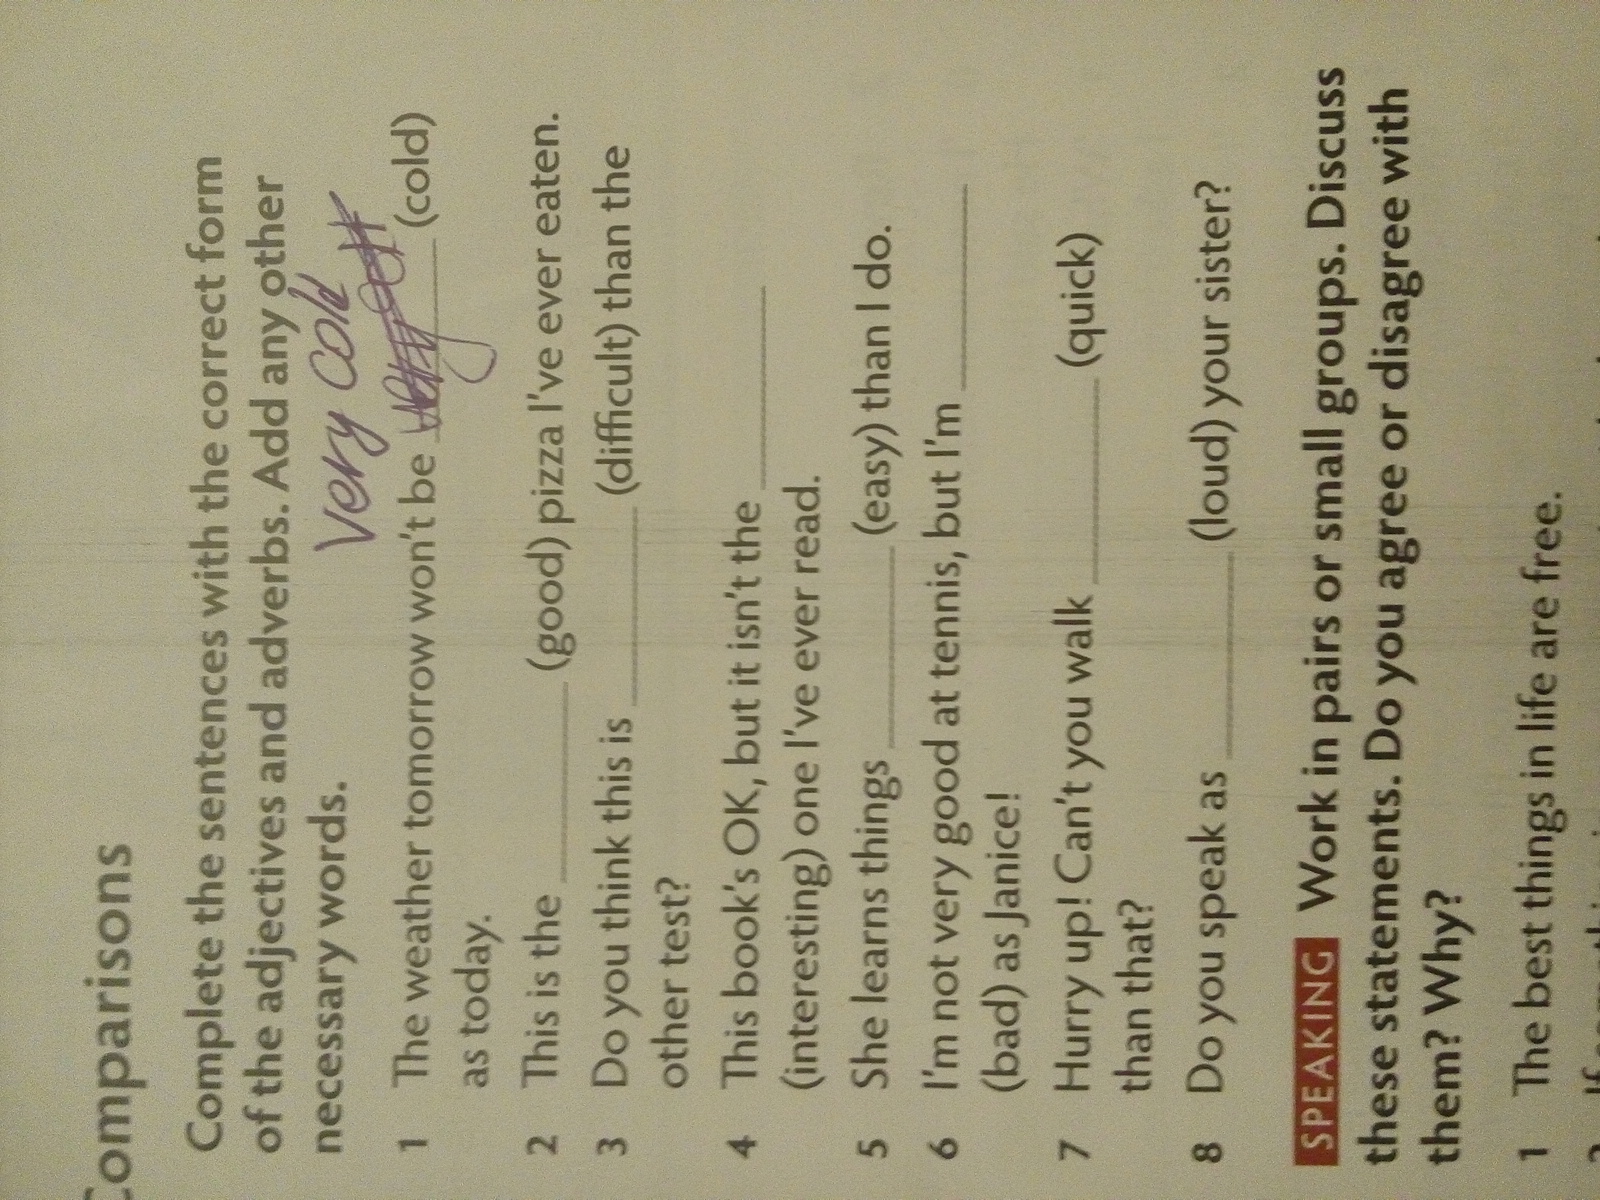 omparisons
Complete the sentences with the correct form
of the adjectives and adverbs. Add any other
necessary words.
very cold
1 The weather tomorrow won't be ________ (cold)
as today.
2 This is the ________ (good) pizza I've ever eaten.
3 Do you think this is ________ (difficult) than the
other test?
4 This book's OK, but it isn't the ________
(interesting) one I've ever read.
5 She learns things ________ (easy) than I do.
6 I'm not very good at tennis, but I'm ________
(bad) as Janice!
7 Hurry up! Can't you walk ________ (quick)
than that?
8 Do you speak as ________ (loud) your sister?
SPEAKING Work in pairs or small groups. Discuss
these statements. Do you agree or disagree with
them? Why?
1 The best things in life are free.